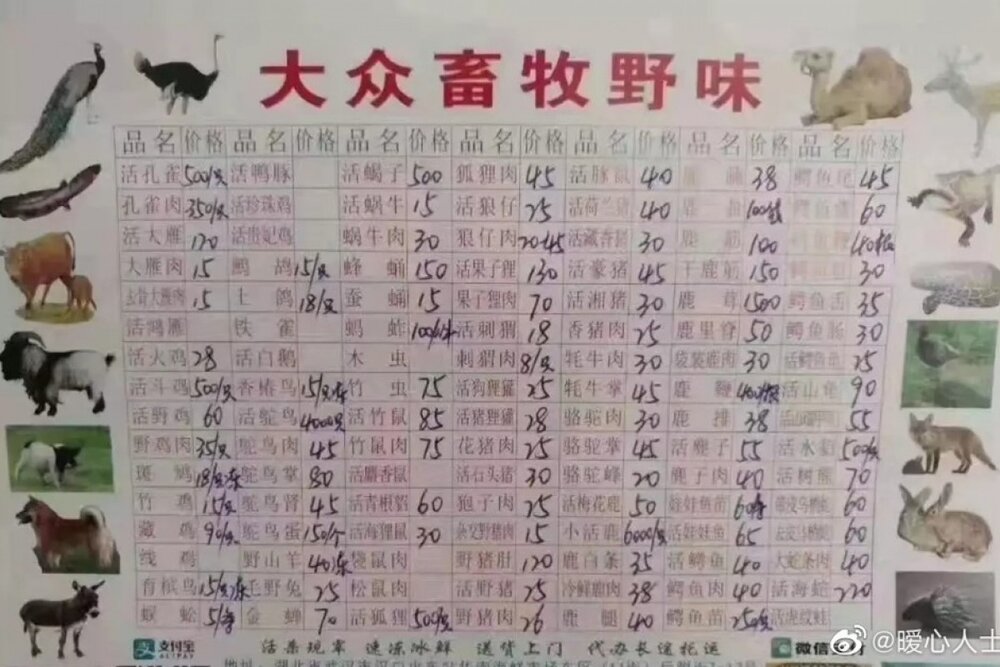 大众畜牧野味
品名 价格 品名 价格 品名 价格 品名 价格 品名 价格 品名 价格 品名 价格
活孔雀 500/只 活鸭豚 活蝎子 500 狐狸肉 45 活豚鼠 40 38 鳄鱼尾 45
孔雀肉 350/只 活珍珠鸡 活蜗牛 15 活狼仔 25 活荷兰猪 40 60
活大雁 120 活贵妃鸡 蜗牛肉 30 狼仔肉 20-45 活藏香猪 30 鹿筋 100
大雁肉 15 鹧鸪 15/只 蜂蛹 150 活果子狸 130 活豪猪 45 干鹿筋 150 30
去骨大雁肉 15 土鸽 18/只 蚕蛹 15 果子狸肉 70 活湘猪 30 鹿茸 1500 鳄鱼舌 35
活鸿雁 铁雀 蚂蚱 活刺猬 18 香猪肉 25 鹿里脊 50 鳄鱼肠 30
活火鸡 28 活白鹅 木虫 刺猬肉 8/只 牦牛肉 30 袋装鹿肉 30 活鳄鱼龟 25
活斗鸡 500/只 香椿鸟 15/只冻 竹虫 75 活狗狸獾 25 牦牛掌 45 鹿鞭 活山龟 90
活野鸡 60 活鸵鸟 4000/只 活竹鼠 85 活猪狸獾 28 骆驼肉 30 鹿排 38 55
野鸡肉 35/只 鸵鸟肉 45 竹鼠肉 75 花猪肉 25 骆驼掌 45 活麂子 55 活水貂 500/只
斑鸠 18/只冻 鸵鸟掌 80 活麝香鼠 活石头猪 30 骆驼峰 20 麂子肉 40 活树熊 70
竹鸡 15/只 鸵鸟肾 45 活青根貂 60 狍子肉 25 活梅花鹿 50 娃娃鱼苗 带皮乌梢蛇 60
藏鸡 90/只 鸵鸟蛋 150/个 活海狸鼠 30 杂交野猪肉 15 小活鹿 6000/只 活娃娃鱼 65 去皮乌梢蛇 60
线鸡 野山羊 40冻 袋鼠肉 野猪肚 120 鹿白条 35 活鳄鱼 40 大蛇条肉 40
育槟鸟 15/只冻 毛野兔 25 松鼠肉 活野猪 25 冷鲜鹿肉 38 鳄鱼肉 40 活海蛇 220
蜈蚣 金蝉 70 活狐狸 500/只 野猪肉 26 鹿腿 40 鳄鱼苗 250/只 活虎纹蛙
支付宝 ALIPAY 活杀现宰 速冻冰鲜 送货上门 代办长途托运 微信
@暖心人士